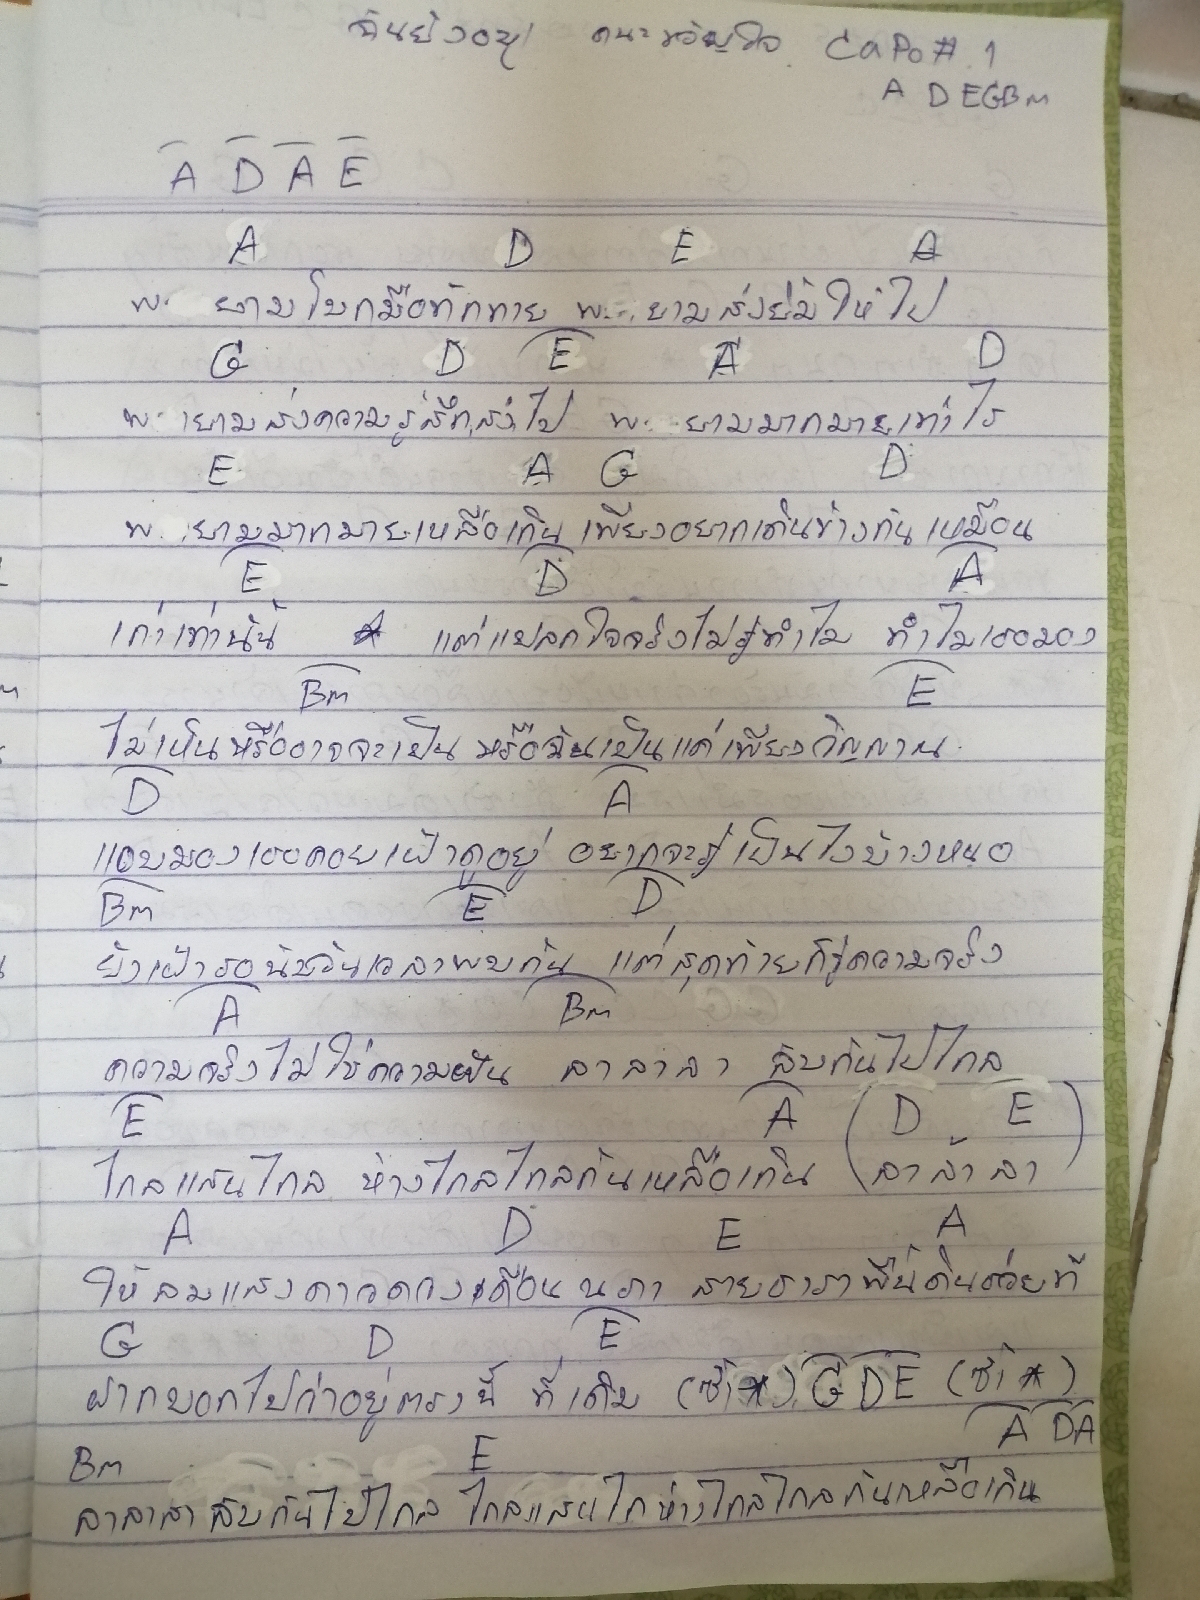 ฉันยังอยู่ คณะขวัญใจ Capo# 1
A D E G Bm
A D A E
A D E A
พ ยามโบกมือทักทาย พ ยามส่งยิ้มให้ไป
G D E A D
พ ยามส่งความรู้สึกส่งไป พ ยามมากมายเท่าไร
E A G D
พ ยามมากมายเหลือเกิน เพียงอยากเดินข้างกันเหมือน
E D A
เก่าเท่านั้น * แต่แปลกใจจริงไม่รู้ทำไม ทำไมเธอมอง
Bm E
ไม่เห็นหรืออาจจะเป็น หรือฉันเป็นแค่เพียงวิญญาณ
D A
แอบมองเธอคอยเฝ้าดูอยู่ อยากจะรู้เป็นไงบ้างหนอ
Bm E D
ยังเฝ้ารอนับวันเวลาพบกัน แต่สุดท้ายก็รู้ความจริง
A Bm
ความจริงไม่ใช่ความฝัน ลาลาลา ลับกันไปไกล
E A (D E)
ไกลแสนไกล ห่างไกลไกลกันเหลือเกิน (ลาล้าลา)
A D E A
ให้ลมแสงดาวดวงเดือนนภา สายธาราพื้นดินช่วยที
G D E
ฝากบอกไปว่าอยู่ตรงนี้ ที่เดิม (ซ้ำ*) G D E (ซ้ำ *)
Bm E A D A
ลาลาลาลับกันไปไกล ไกลแสนไกห่างไกลไกลกันเหลือเกิน